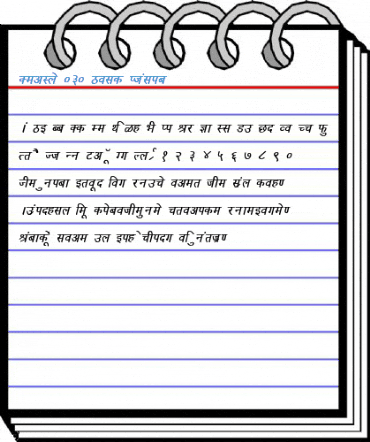 क्मअस्ले ०३० ठवसक प्जंसपब
। ठइ ब्ब क्क म्म र्थ ळह भै प्प श्रर ज्ञा स्स डउ छद व्व च्च फु
त्तै ज्ज न्न टअॅू ग्ग ल्ल १ २ ३ ४ ५ ६ ७ ८ ९ ०
जीमुनपबा इतवूद विग रनउचे वअमत जीम संल कवहण
।उंपदहसल मूि कपेबवजीमुनमे चतवअपकम रनामइवगमेण
श्रंबाकूे सवअम उल इपहेचीपदग वुिनंतज्रण